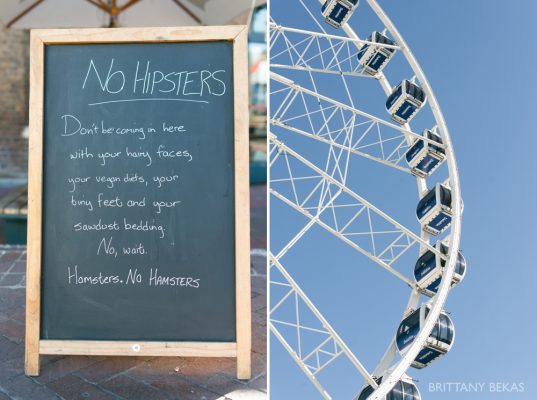 No Hipsters
Don't be coming in here
with your hairy faces,
your vegan diets, your
tiny feet and your
sawdust bedding.
No, wait.
Hamsters. No Hamsters
BRITTANY BEKAS